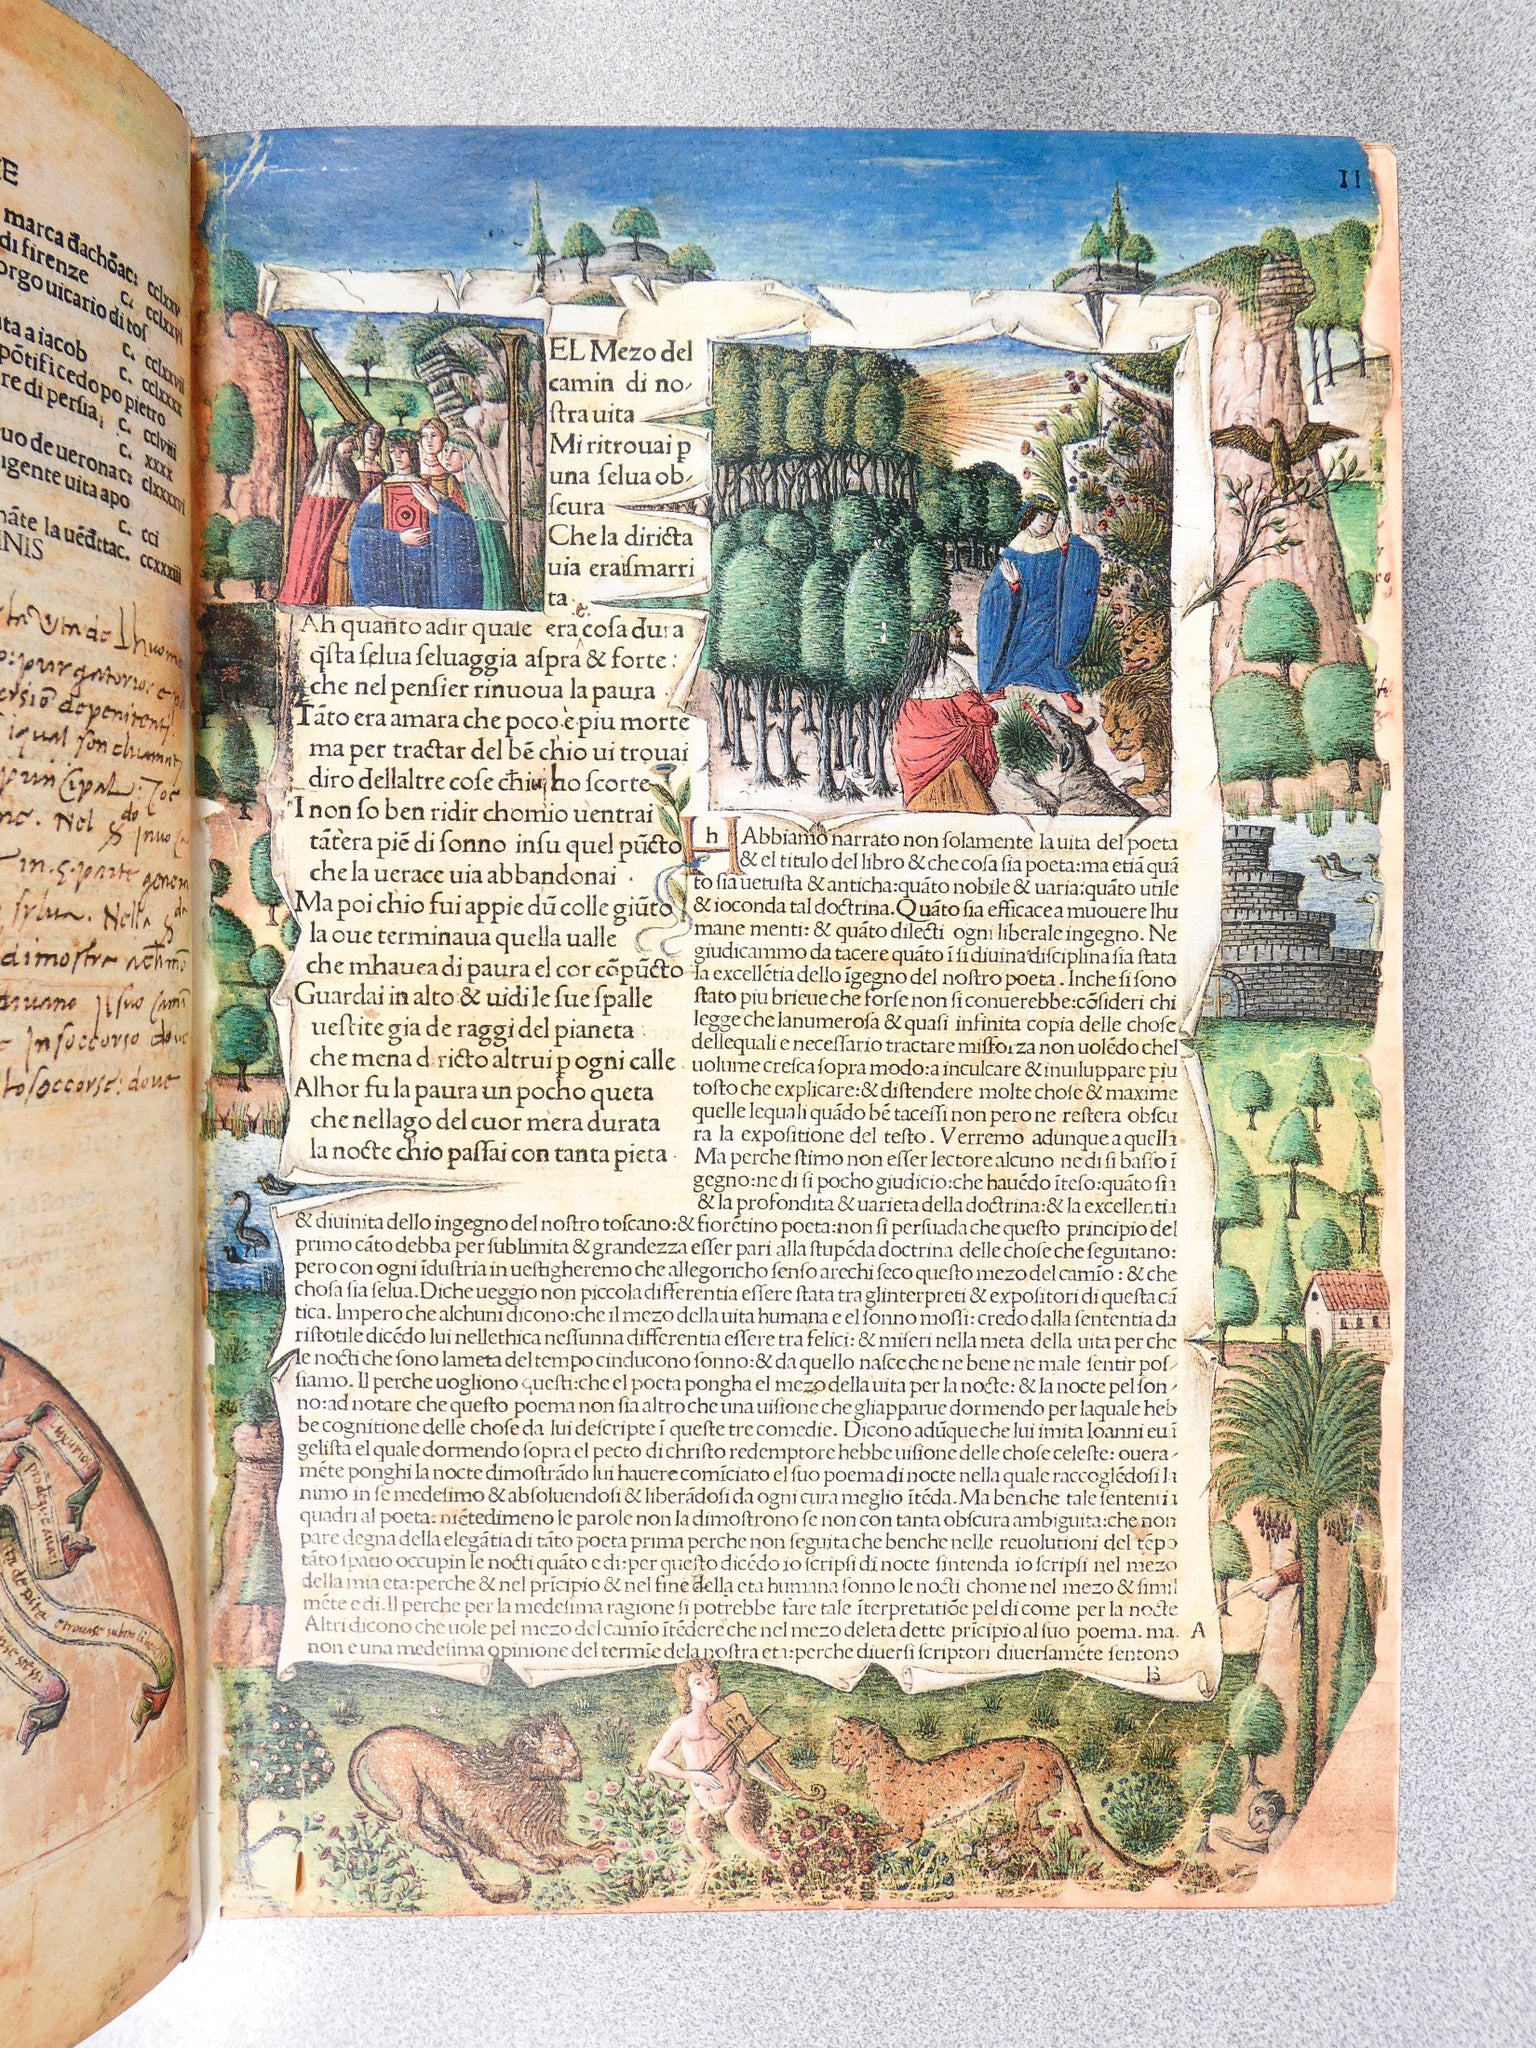 II
E
marca đachōac: cclxxv
di firenze c. cclxxvi
orgo uicario di tos
ta a iacob c. cclxxvii
pōtifice do po pietro c. cclxxx
re di persia, c. cclviii
uo de uerona c: clxxxxvi
igente uita apo c. cci
nāte la uēdttac. ccxxxiii
INIS
N
EL Mezo del
camin di no-
stra uita
Mi ritrouai p
una selua ob-
scura
Che la diricta
uia era smarri
ta.
Ah quanto adir quale era cosa dura
q̄sta selua seluaggia aspra & forte:
che nel pensier rinuoua la paura
Tāto era amara che poco è piu morte
ma per tractar del bē chio ui trouai
diro dellaltre cose chiui ho scorte
I non so ben ridir chomio uentrai
tāt'era piē di sonno insu quel pūcto
che la uerace uia abbandonai .
Ma poi chio fui appie dū colle giūto
la oue terminaua quella ualle
che mhauea di paura el cor cōpūcto
Guardai in alto & uidi le sue spalle
uestite gia de raggi del pianeta
che mena diricto altrui p ogni calle
Alhor fu la paura un pocho queta
che nellago del cuor mera durata
la nocte chio passai con tanta pieta .
h Abbiamo narrato non solamente la uita del poeta
& el titulo del libro & che cosa sia poeta:ma etiā quā
to sia uetusta & anticha:quāto nobile & uaria:quāto utile
& ioconda tal doctrina. Quāto sia efficace a muouere lhu
mane menti: & quāto dilecti ogni liberale ingegno. Ne
giudicammo da tacere quāto ī si diuina disciplina sia stata
la excellētia dello īgegno del nostro poeta . Inche si sono
stato piu brieue che forse non si conuerebbe:cōsideri chi
legge che lanumerosa & quasi infinita copia delle chose
dellequali e necessario tractare misforza non uolēdo chel
uolume cresca sopra modo:a inculcare & inuiluppare piu
tosto che explicare:& distendere molte chose & maxime
quelle lequali quādo bē tacessi non pero ne restera obscu
ra la expositione del testo . Verremo adunque a quella
Ma perche stimo non esser lectore alcuno ne di si basso ī
gegno:ne di si pocho giudicio:che hauēdo īteso:quāto sia
& la profondita & uarieta della doctrina:& la excellentia
& diuinita dello ingegno del nostro toscano:& fiorētino poeta:non si persuada che questo principio del
primo cāto debba per sublimita & grandezza esser pari alla stupēda doctrina delle chose che seguitano:
pero con ogni īdustria in uestigheremo che allegoricho senso arechi seco questo mezo del camīo : & che
chosa sia selua. Diche ueggio non piccola differentia essere stata tra glinterpreti & expositori di questa cā
tica. Impero che alchuni dicono:che il mezo della uita humana e el sonno mossi: credo dalla sententia da
ristotile dicēdo lui nellethica nessunna differentia essere tra felici: & miseri nella meta della uita per che
le nocti che sono lameta del tempo cinducono sonno:& da quello nasce che ne bene ne male sentir pos-
siamo. Il perche uogliono questi:che el poeta pongha el mezo della uita per la nocte: & la nocte pel son-
no:ad notare che questo poema non sia altro che una uisione che gliapparue dormendo per laquale heb
be cognitione delle chose da lui descripte ī queste tre comedie. Dicono adūque che lui imita Ioanni euā
gelista el quale dormendo sopra el pecto di christo redemptore hebbe uisione delle chose celeste: ouera-
mēte ponghi la nocte dimostrādo lui hauere comīciato el suo poema di nocte nella quale raccoglēdosi la
nimo in se medesimo & absoluendosi & liberādosi da ogni cura meglio ītēda. Ma ben che tale sententia
quadri al poeta: niētedimeno le parole non la dimostrono se non con tanta obscura ambiguita:che non
pare degna della elegātia di tāto poeta prima perche non seguita che benche nelle reuolutioni del tēpo
tāto spatio occupin le nocti quāto e di:per questo dicēdo io scripsi di nocte sintenda io scripsi nel mezo
della mia eta:perche & nel prīcipio & nel fine della eta humana sonno le nocti chome nel mezo & simil
mēte e di. Il perche per la medesima ragione si potrebbe fare tale īterpretatiōe pel di come per la nocte
Altri dicono che uole pel mezo del camīo ītēdere che nel mezo deleta dette prīcipio al suo poema. ma. A
non e una medesima opinione del termīe dela nostra eta:perche diuersi scriptori diuersamēte sentono
b